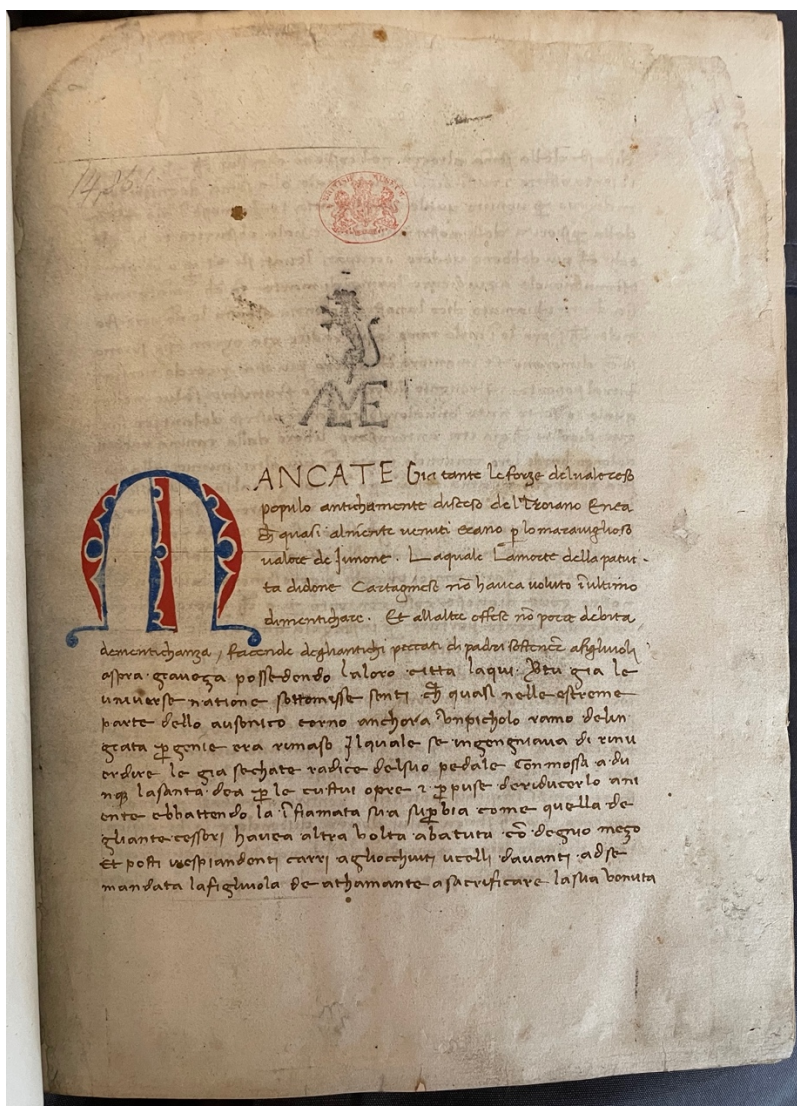 BRITISH MUSEUM
MANCATE Gia tante le forze delvaleroso
populo antichamente disceso del Troiano Enea
ch̄ quasi alniente venuti erano ꝑ lo maraviglioso
valore de Junone . Laquale Lamorte della patui-
ta didone Cartaginese nō havea voluto ī ultimo
dimentichare . Et allaltre offese nō porre debita
dementichanza / facende degliantichi peccati di padri sostenere afigliuoli
aspra gravoza possedendo laloro citta laqui. Vtu gia le
universe natione sottomesse senti ch̄ quasi nelle estreme
parte dello ausonico corno anchora unpicholo ramo delin
grata ꝓgenie era rimaso Jlquale se ingengniava di rinu
erdire le gia sechate radice delsuo pedale Conmossa adu
nqꝫ lasanta dea ꝑ le custui opere ꝓpuse deriducerlo ani
ente ebbattendo la īfiamata sua supbia come quella de
gliante.cessori havea altra volta abatuta cō degno mezo
Et posti risplandenti carri agliocchiuti ucelli davanti adse
mandata lafigliuola de athamante asacrificare lasua venuta